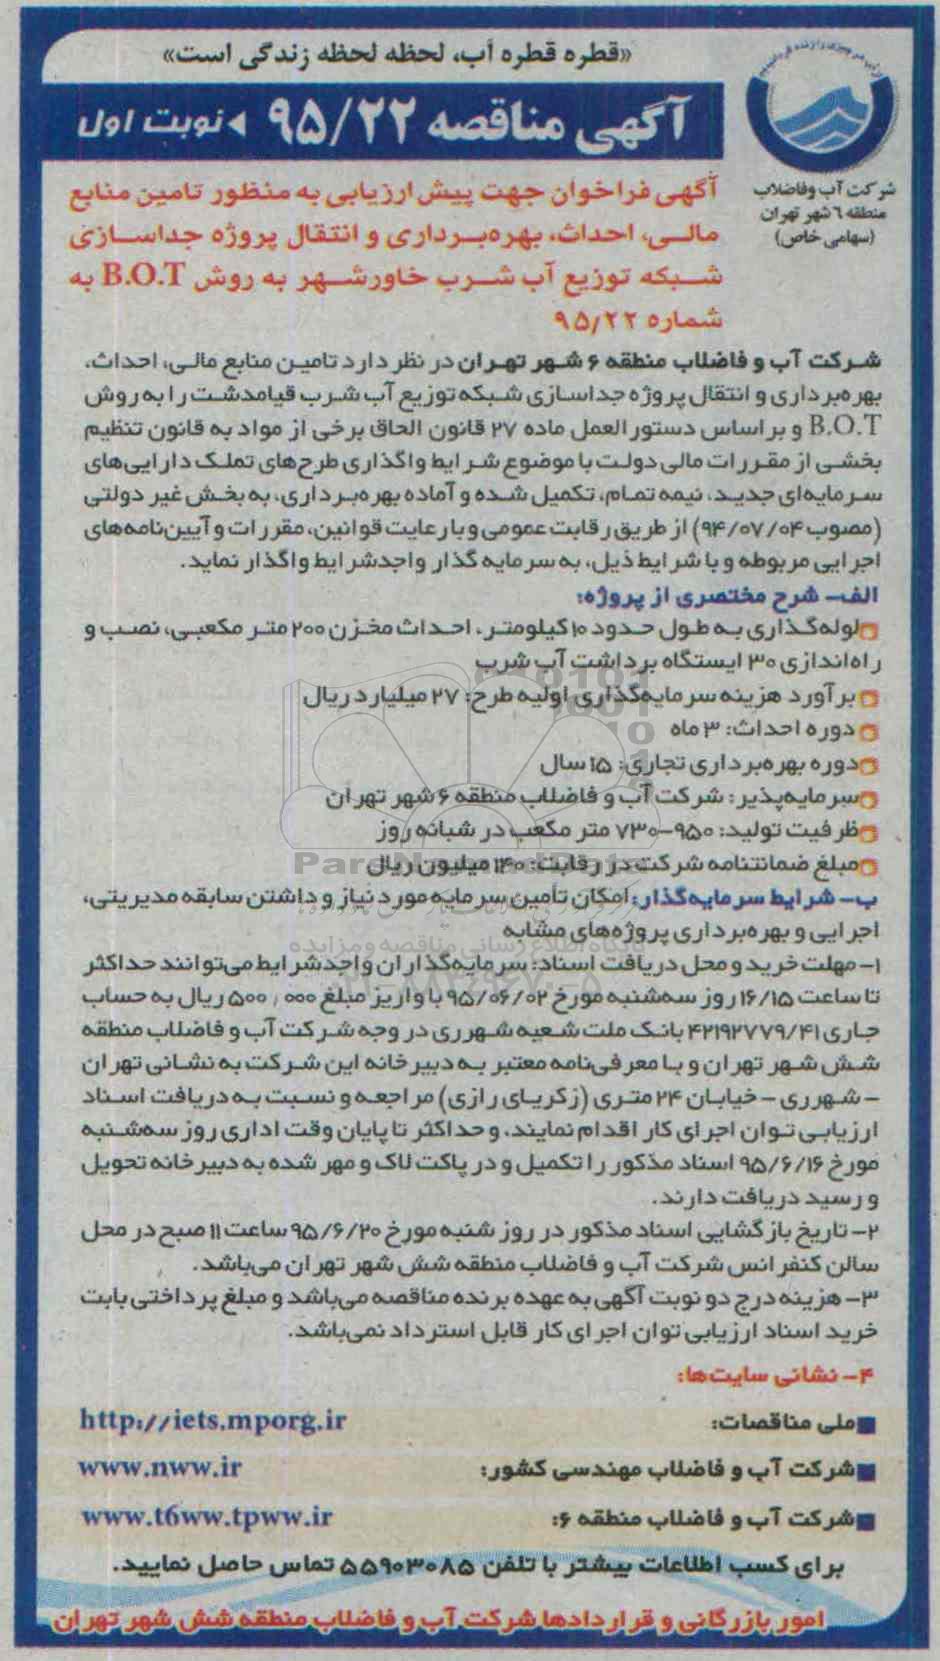 «قطره قطره آب، لحظه لحظه زندگی است»
آگهی مناقصه ۹۵/۲۲ ◂ نوبت اول
شرکت آب وفاضلاب
منطقه ۶ شهر تهران
(سهامی خاص)
آگهی فراخوان جهت پیش ارزیابی به منظور تامین منابع
مالی، احداث، بهره‌برداری و انتقال پروژه جداسازی
شبکه توزیع آب شرب خاورشهر به روش B.O.T به
شماره ۹۵/۲۲
شرکت آب و فاضلاب منطقه ۶ شهر تهران در نظر دارد تامین منابع مالی، احداث،
بهره‌برداری و انتقال پروژه جداسازی شبکه توزیع آب شرب قیامدشت را به روش
B.O.T و بر اساس دستورالعمل ماده ۲۷ قانون الحاق برخی از مواد به قانون تنظیم
بخشی از مقررات مالی دولت با موضوع شرایط واگذاری طرح‌های تملک دارایی‌های
سرمایه‌ای جدید، نیمه تمام، تکمیل شده و آماده بهره‌برداری، به بخش غیر دولتی
(مصوب ۹۴/۰۷/۰۴) از طریق رقابت عمومی و با رعایت قوانین، مقررات و آیین‌نامه‌های
اجرایی مربوطه و با شرایط ذیل، به سرمایه گذار واجدشرایط واگذار نماید.
الف- شرح مختصری از پروژه:
لوله‌گذاری به طول حدود ۱۰ کیلومتر، احداث مخزن ۲۰۰ متر مکعبی، نصب و
راه‌اندازی ۳۰ ایستگاه برداشت آب شرب
برآورد هزینه سرمایه‌گذاری اولیه طرح: ۲۷ میلیارد ریال
دوره احداث: ۳ ماه
دوره بهره‌برداری تجاری: ۱۵ سال
سرمایه‌پذیر: شرکت آب و فاضلاب منطقه ۶ شهر تهران
ظرفیت تولید: ۹۵۰-۷۳۰ متر مکعب در شبانه روز
مبلغ ضمانتنامه شرکت در رقابت: ۱۴۰ میلیون ریال
ب- شرایط سرمایه‌گذار: امکان تأمین سرمایه مورد نیاز و داشتن سابقه مدیریتی،
اجرایی و بهره‌برداری پروژه‌های مشابه
۱- مهلت خرید و محل دریافت اسناد: سرمایه‌گذاران واجدشرایط می‌توانند حداکثر
تا ساعت ۱۶/۱۵ روز سه‌شنبه مورخ ۹۵/۰۶/۰۲ با واریز مبلغ ۵۰۰,۰۰۰ ریال به حساب
جاری ۴۲۱۹۲۷۷۹/۴۱ بانک ملت شعبه شهرری در وجه شرکت آب و فاضلاب منطقه
شش شهر تهران و با معرفی‌نامه معتبر به دبیرخانه این شرکت به نشانی تهران
- شهرری - خیابان ۲۴ متری (زکریای رازی) مراجعه و نسبت به دریافت اسناد
ارزیابی توان اجرای کار اقدام نمایند، و حداکثر تا پایان وقت اداری روز سه‌شنبه
مورخ ۹۵/۶/۱۶ اسناد مذکور را تکمیل و در پاکت لاک و مهر شده به دبیرخانه تحویل
و رسید دریافت دارند.
۲- تاریخ بازگشایی اسناد مذکور در روز شنبه مورخ ۹۵/۶/۲۰ ساعت ۱۱ صبح در محل
سالن کنفرانس شرکت آب و فاضلاب منطقه شش شهر تهران می‌باشد.
۳- هزینه درج دو نوبت آگهی به عهده برنده مناقصه می‌باشد و مبلغ پرداختی بابت
خرید اسناد ارزیابی توان اجرای کار قابل استرداد نمی‌باشد.
۴- نشانی سایت‌ها:
ملی مناقصات: http://iets.mporg.ir
شرکت آب و فاضلاب مهندسی کشور: www.nww.ir
شرکت آب و فاضلاب منطقه ۶: www.t6ww.tpww.ir
برای کسب اطلاعات بیشتر با تلفن ۵۵۹۰۳۰۸۵ تماس حاصل نمایید.
امور بازرگانی و قراردادها شرکت آب و فاضلاب منطقه شش شهر تهران